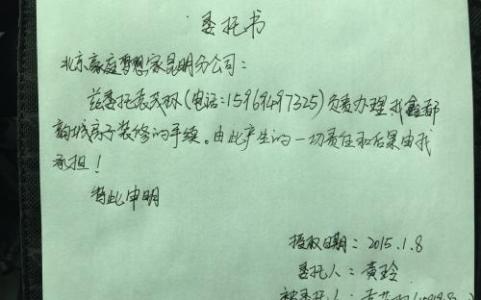 委托书
北京家庭梦想家昆明分公司：
兹委托 (电话:15969497325)负责办理我鑫都
韵城房子装修的手续。由此产生的一切责任和后果由我
承担！
特此申明
授权日期：2015.1.8
委托人：黄玲
被委托人：